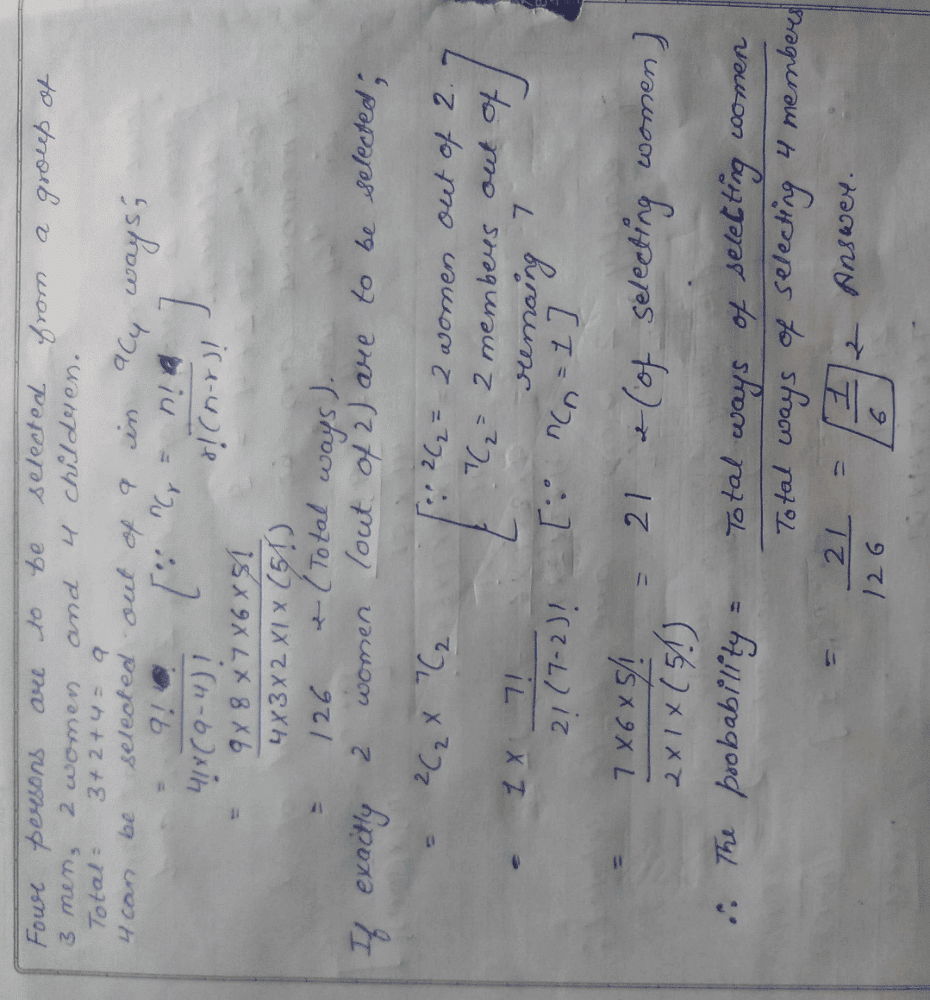 Four persons are to be selected from a group of
3 men, 2 women and 4 children.
Total = 3+2+4 = 9
4 can be selected out of 9 in 9C4 ways;
= 9! / 4!×(9-4)! [∵ nCr = n! / r!(n-r)! ]
= 9×8×7×6×5! / 4×3×2×1×(5!)
= 126 ← (Total ways).
If exactly 2 women (out of 2) are to be selected;
= 2C2 × 7C2 [∵ 2C2 = 2 women out of 2.
7C2 = 2 members out of
remaing 7 ]
= 1 × 7! / 2!(7-2)! [∵ nCn = 1]
= 7×6×5! / 2×1×(5!) = 21 ← (of selecting women)
∴ The probability = Total ways of selecting women / Total ways of selecting 4 members
= 21 / 126 = 1 / 6 ← Answer.